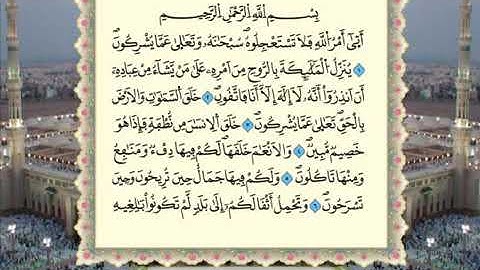 بِسْمِ اللَّهِ الرَّحْمَٰنِ الرَّحِيمِ
أَتَىٰ أَمْرُ اللَّهِ فَلَا تَسْتَعْجِلُوهُ ۚ سُبْحَانَهُ وَتَعَالَىٰ عَمَّا يُشْرِكُونَ
١ يُنَزِّلُ الْمَلَائِكَةَ بِالرُّوحِ مِنْ أَمْرِهِ عَلَىٰ مَنْ يَشَاءُ مِنْ عِبَادِهِ
أَنْ أَنْذِرُوا أَنَّهُ لَا إِلَٰهَ إِلَّا أَنَا فَاتَّقُونِ ٢ خَلَقَ السَّمَاوَاتِ وَالْأَرْضَ
بِالْحَقِّ ۚ تَعَالَىٰ عَمَّا يُشْرِكُونَ ٣ خَلَقَ الْإِنْسَانَ مِنْ نُطْفَةٍ فَإِذَا هُوَ
خَصِيمٌ مُبِينٌ ٤ وَالْأَنْعَامَ خَلَقَهَا ۗ لَكُمْ فِيهَا دِفْءٌ وَمَنَافِعُ
وَمِنْهَا تَأْكُلُونَ ٥ وَلَكُمْ فِيهَا جَمَالٌ حِينَ تُرِيحُونَ وَحِينَ
تَسْرَحُونَ ٦ وَتَحْمِلُ أَثْقَالَكُمْ إِلَىٰ بَلَدٍ لَمْ تَكُونُوا بَالِغِيهِ